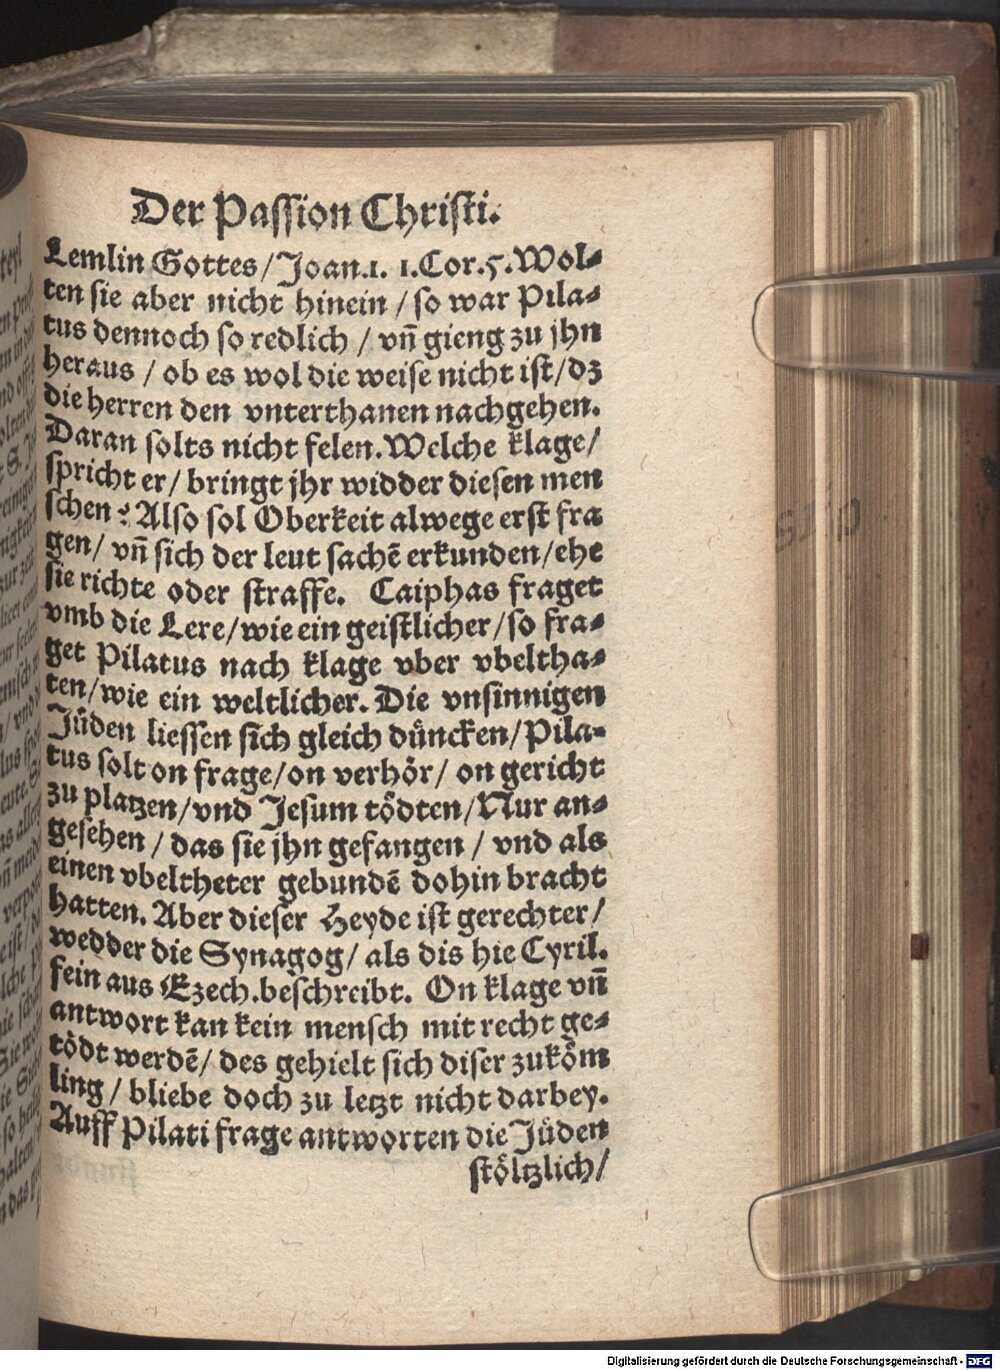 Der Passion Christi.
Lemlin Gottes/Joan.1. 1.Cor.5.Wol-
ten sie aber nicht hinein / so war Pila-
tus dennoch so redlich / vñ gieng zu jhn
heraus / ob es wol die weise nicht ist/dz
die herren den vnterthanen nachgehen.
Daran solts nicht felen.Welche klage/
spricht er/ bringt jhr widder diesen men
schen? Also sol Oberkeit alwege erst fra
gen/ vñ sich der leut sachē erkunden/ehe
sie richte oder straffe. Caiphas fraget
vmb die Lere/wie ein geistlicher/so fra-
get Pilatus nach klage vber vbeltha-
ten/wie ein weltlicher. Die vnsinnigen
Jüden liessen sich gleich düncken/Pila-
tus solt on frage/on verhör/ on gericht
zu platzen/vnd Jesum tödten/Nur an-
gesehen / das sie jhn gefangen / vnd als
einen vbeltheter gebundē dohin bracht
hatten. Aber dieser Heyde ist gerechter/
wedder die Synagog/ als dis hie Cyril.
fein aus Ezech.beschreibt. On klage vñ
antwort kan kein mensch mit recht ge-
tödt werdē/ des gehielt sich diser zuköm
ling / bliebe doch zu letzt nicht darbey.
Auff Pilati frage antworten die Jüden
stöltzlich/
Digitalisierung gefördert durch die Deutsche Forschungsgemeinschaft - DFG